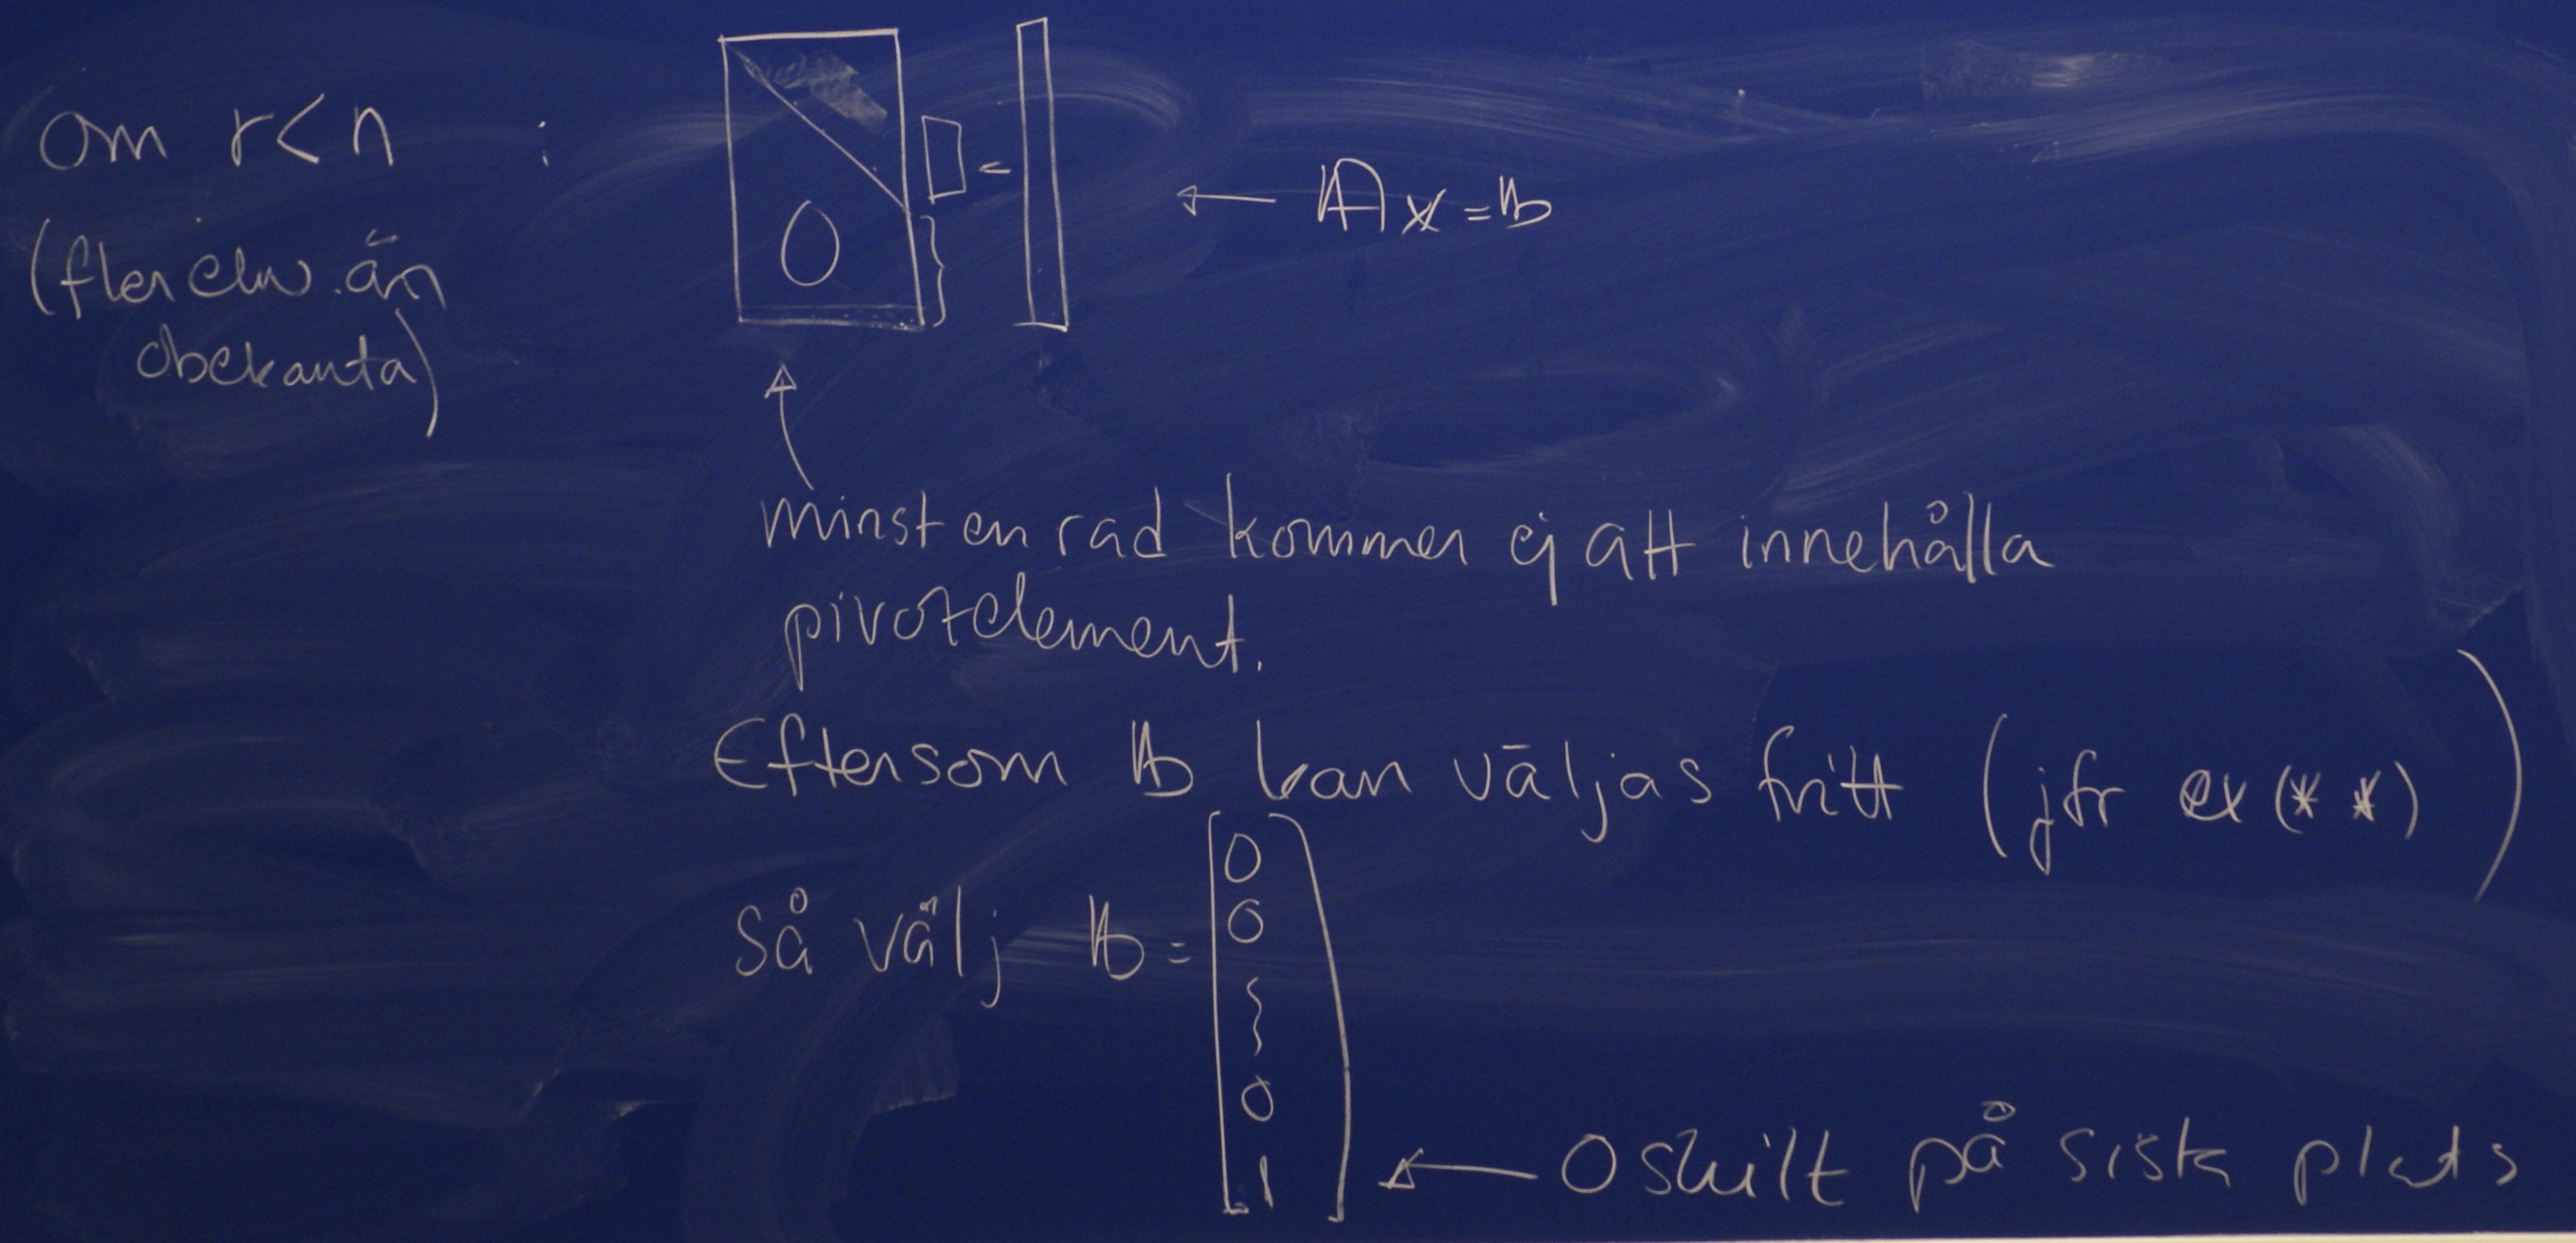 Om r<n :
(fler ekv. än
obekanta)
0
=
← Ax=b
minst en rad kommer ej att innehålla
pivotelement.
Eftersom b kan väljas fritt (jfr ex (**))
Så välj b=
0
0
0
1
← 0 skilt på sista plats